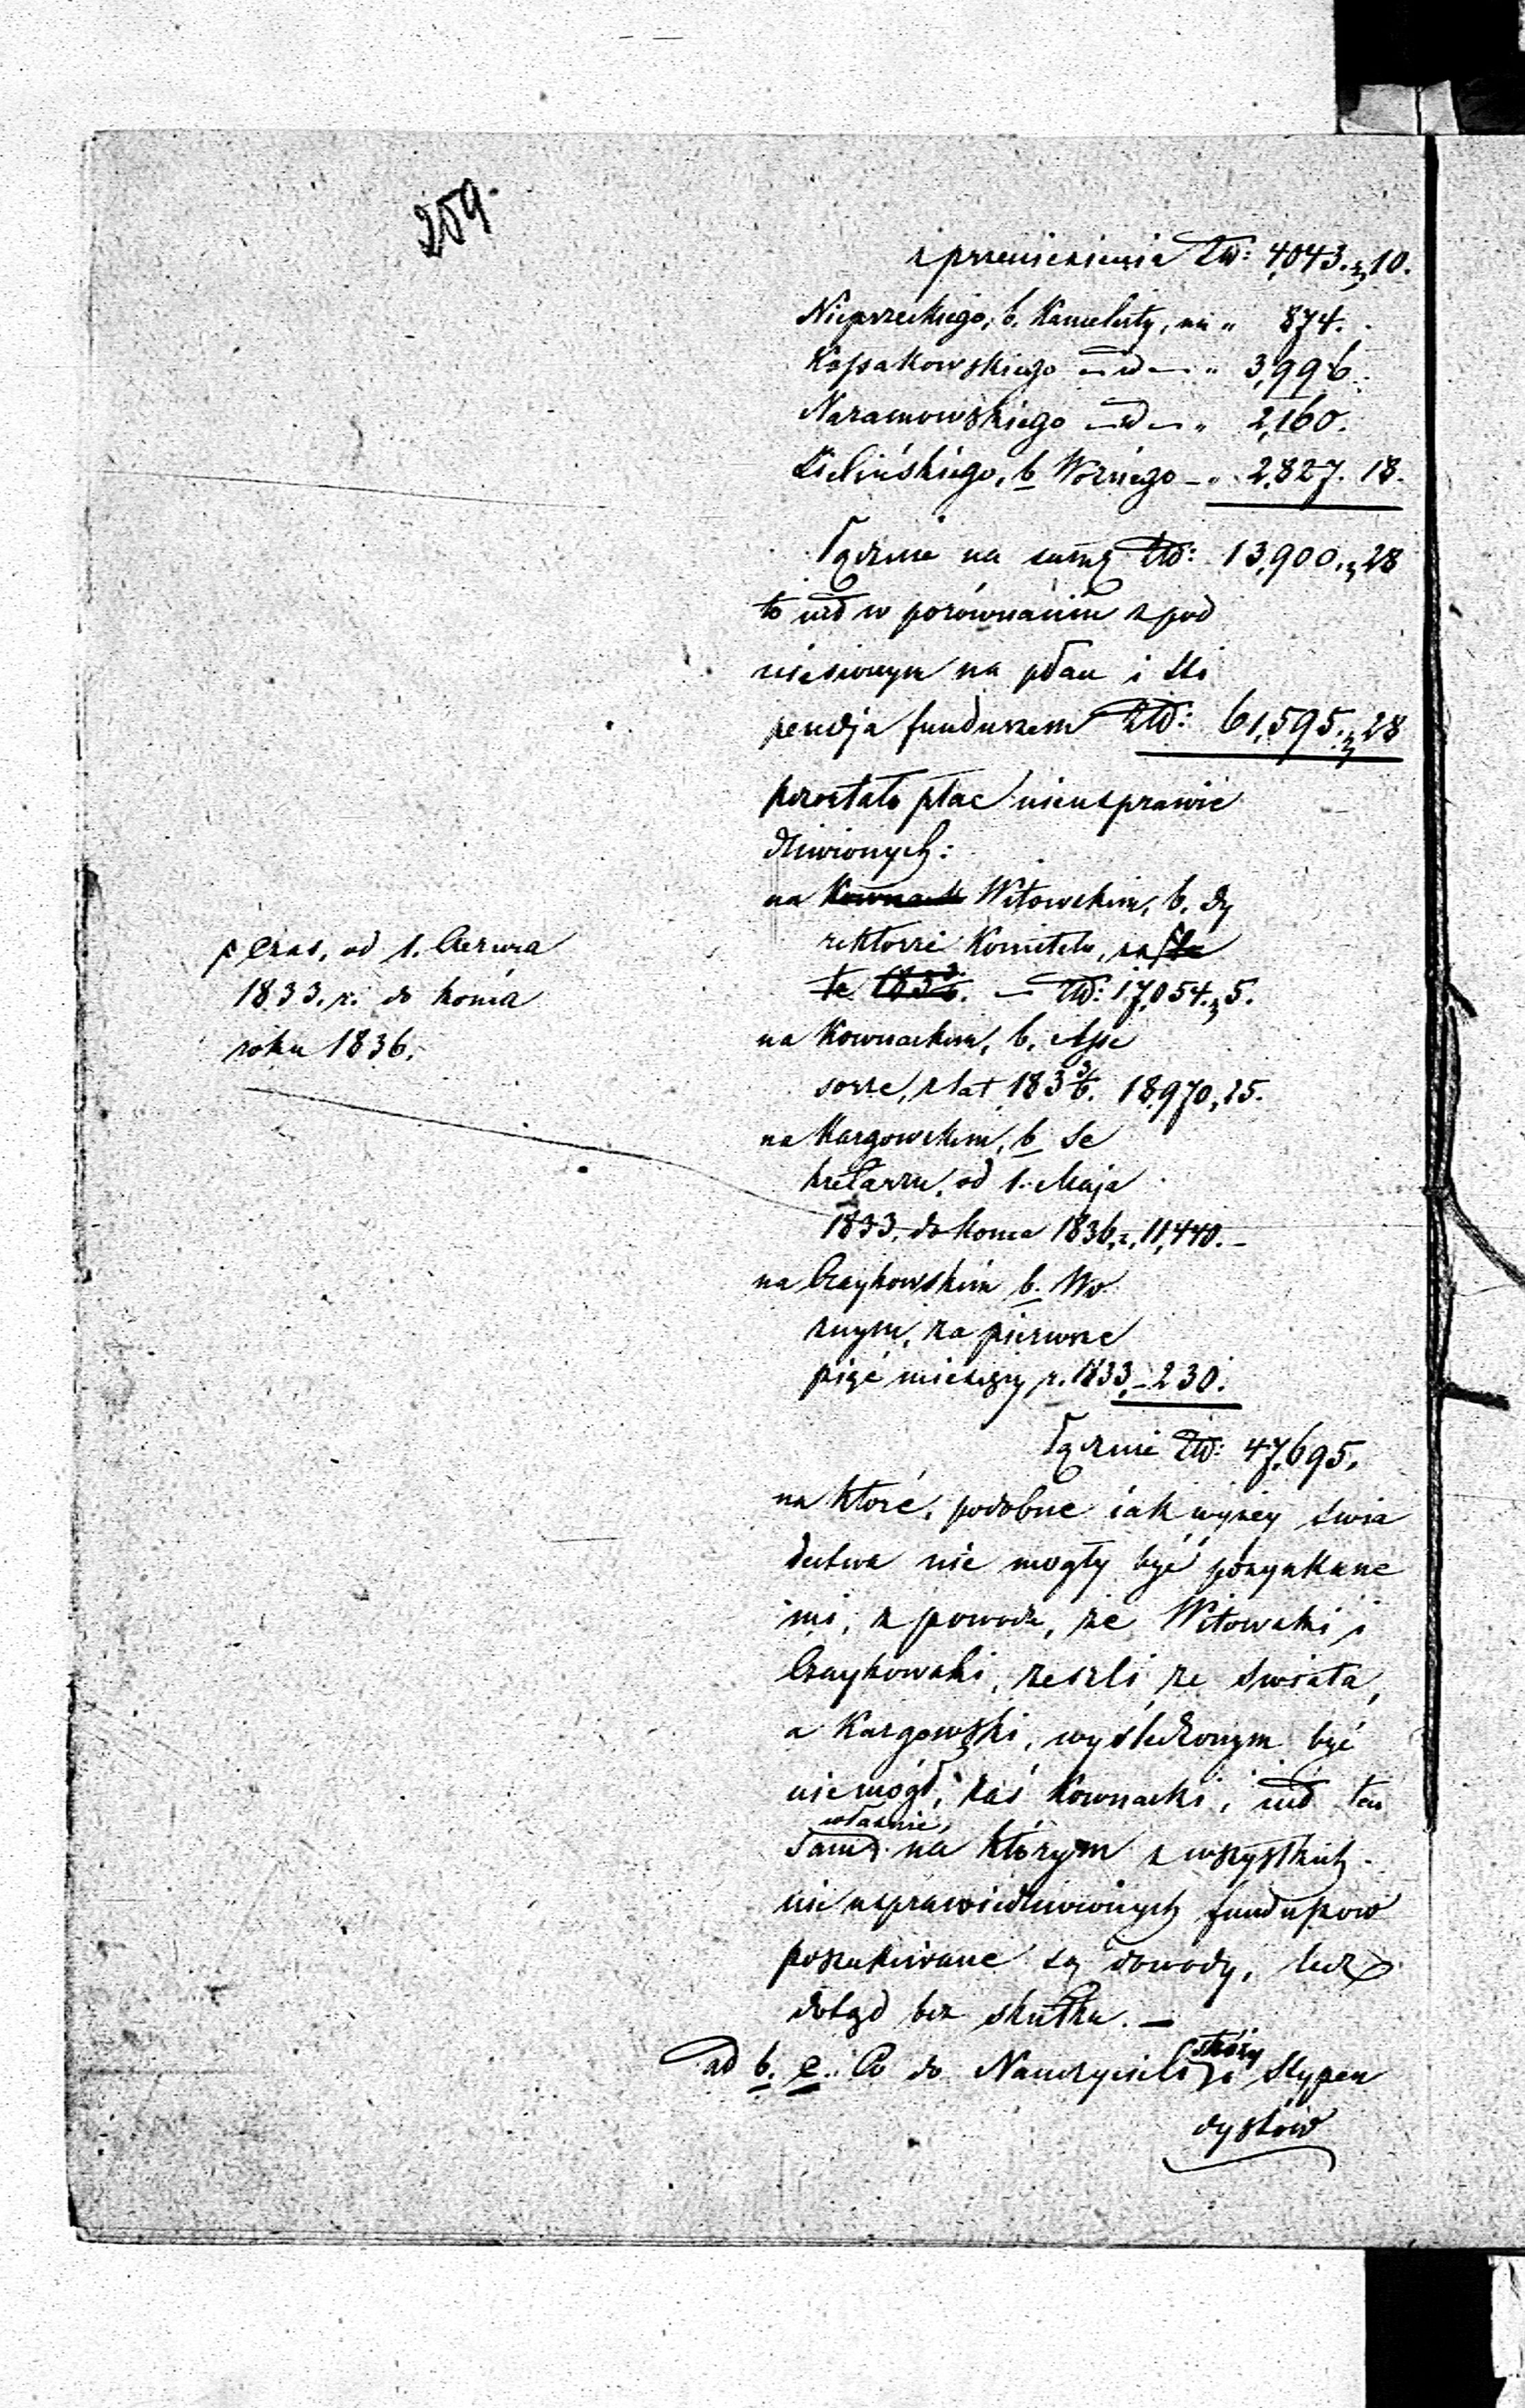 259.
z przeniesienia Złł: 4,043. 10.
Nieprzeckiego, b. Kancelisty, na „ 874.
Kossakowskiego — d — „ 3,996.
Naramowskiego — d — „ 2,160.
Zielińskiego, b Woźnego — „ 2,827. 18.
Łącznie na summę Złł: 13,900. 28
to iest w porównaniu z pod
niesionym na płace i sti
pendja funduszem Złł: 61,595. 28
pozostało płac nieusprawie
dliwionych:
na Kownack Witowskim, b. Dy
rektorze Komitetu, za la
ta 1833/6. — Złł: 17,054. 5.
p czas, od 1. Czerwca
1833. r. do końca
roku 1836.
na Kownackim, b. Asse
sorze, z lat 1833/6. 18,970, 25.
na Kargowskim, b Se
kretarzu, od 1. Maja
1833. do końca 1836, r. 11,440. —
na Czaykowskim b. Wo
źnym, za pierwsze
pięć miesięcy r. 1833, — 230.
Łącznie Złł: 47,695.
na które, podobne iak wyżey świa
dectwa nie mogły być pozyskane
mi, z powodu, że Witowski i
Czaykowski, zeszli ze świata,
a Kargowski, wyśledzonym być
niemógł, zaś Kownacki, iest ten
właśnie,
sam na którym z wszystkich
nieusprawiedliwionych funduszow
poszukiwane są dowody, lecz
dotąd bez skutku. —
ad b. e. Co do Nauczycieli i Stypen
dystów